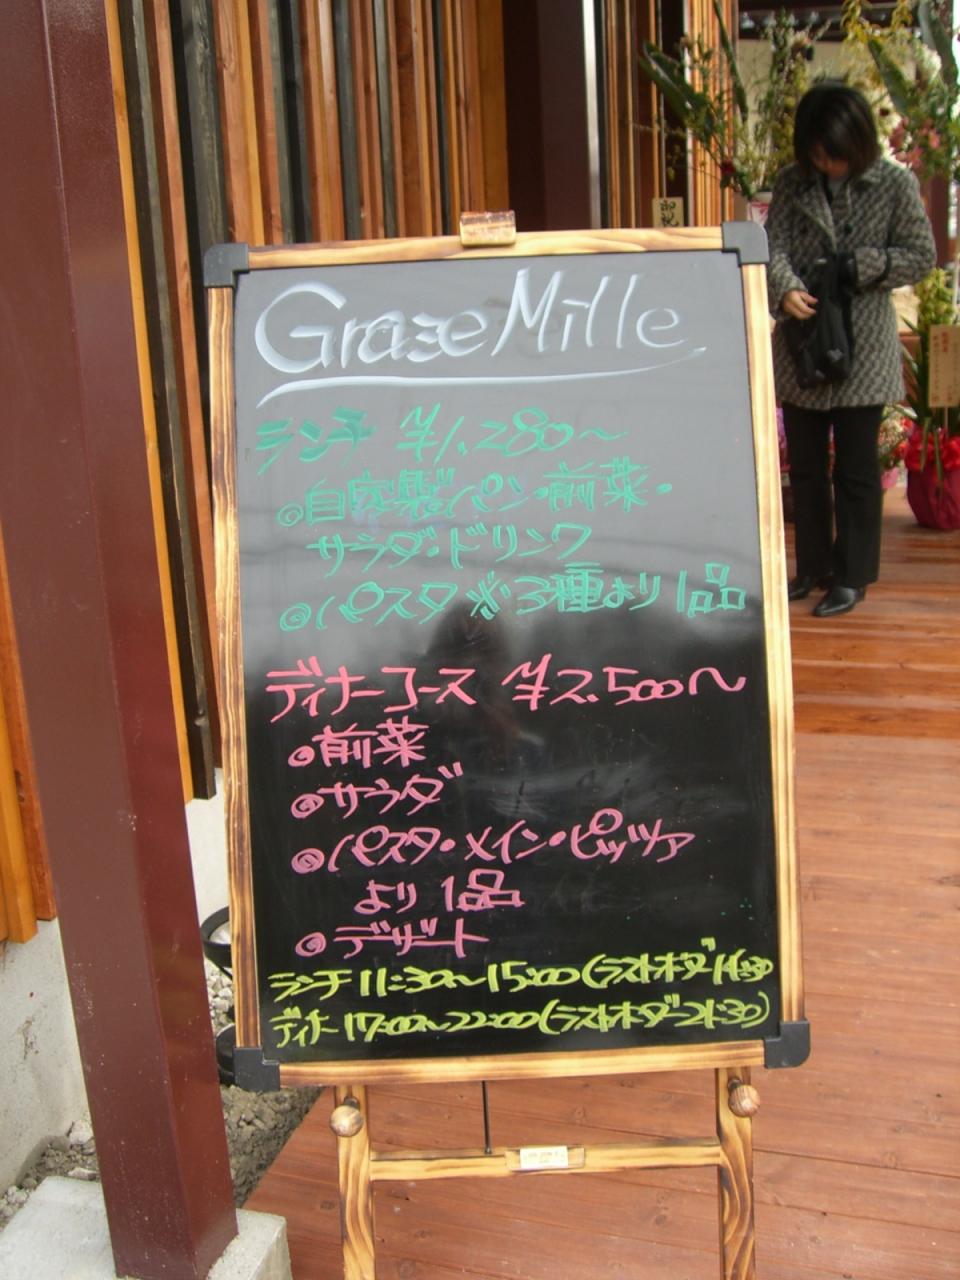 Graze Mille
ランチ ¥1,280〜
◎自家製パン・前菜・
サラダ・ドリンク
◎パスタ※3種より1品
ディナーコース ¥2,500〜
◎前菜
◎サラダ
◎パスタ・メイン・ピッツァ
より 1品
◎デザート
ランチ 11:30〜15:00(ラストオーダー14:30)
ディナー 17:00〜22:00(ラストオーダー21:30)